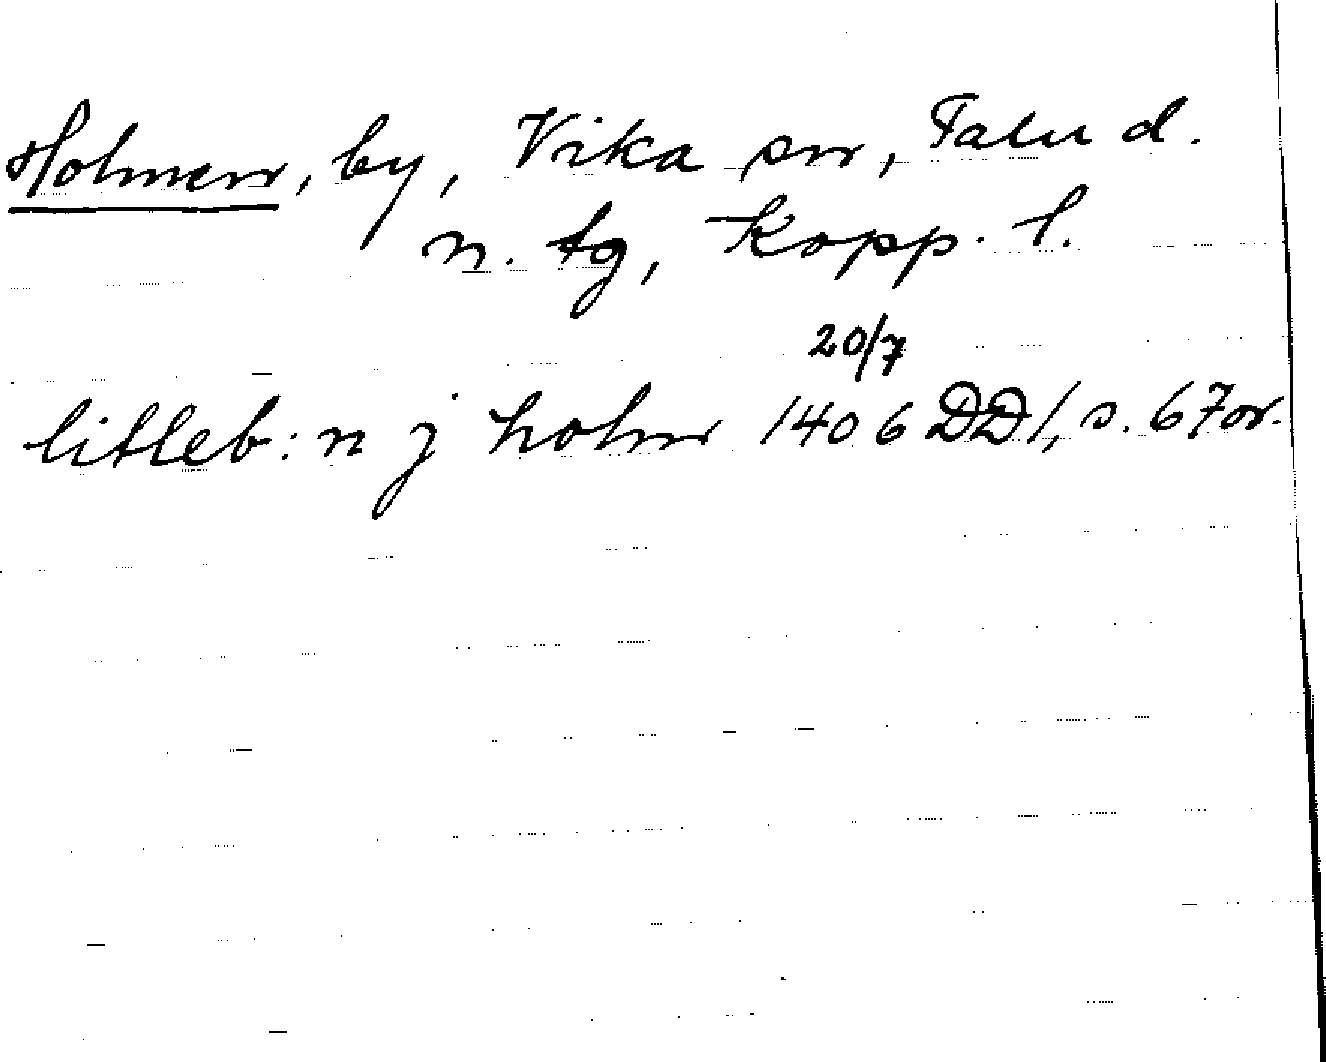 Holmen, by, Vika sn, Falu d.
n. tg, Kopp. l.
20/7
litleb: n j holm 1406 DD1, s. 67 or.